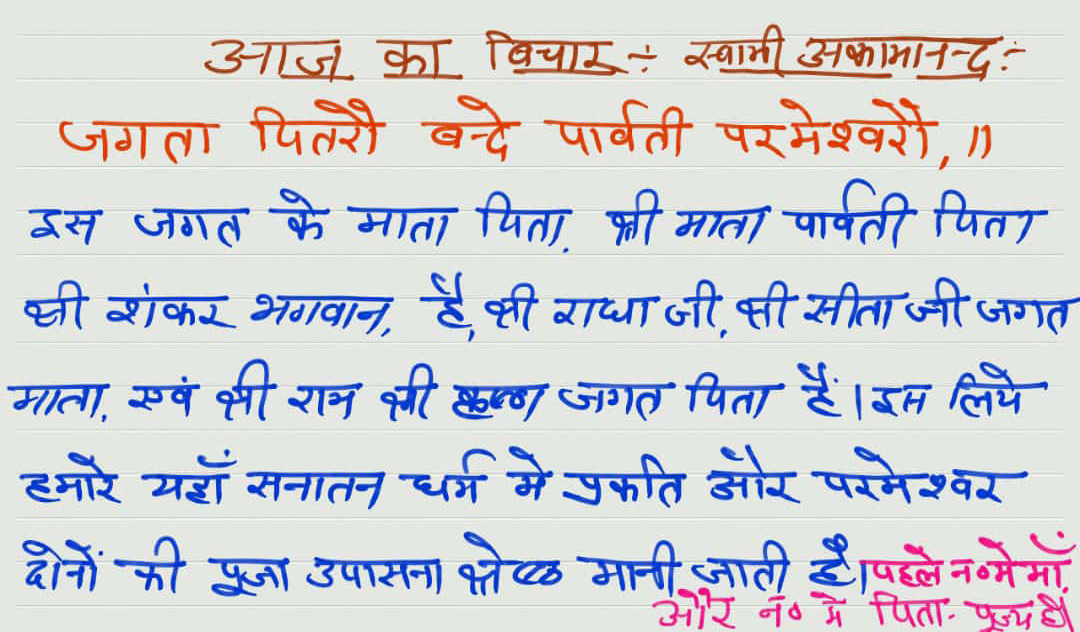 आज का विचार ÷ स्वामी अकामानन्द ÷
जगता पितरौ बन्दे पार्वती परमेश्वरौ, ॥
इस जगत के माता पिता. श्री माता पार्वती पिता
श्री शंकर भगवान, है, श्री राधा जी, श्री सीता जी जगत
माता, एवं श्री राम श्री कृष्ण जगत पिता हैं। इस लिये
हमारे यहाँ सनातन धर्म मे प्रकति और परमेश्वर
दोनों की पूजा उपासना श्रेष्ठ मानी जाती है। पहले न० मे माँ,
और न० मे पिता- पूज्य है।